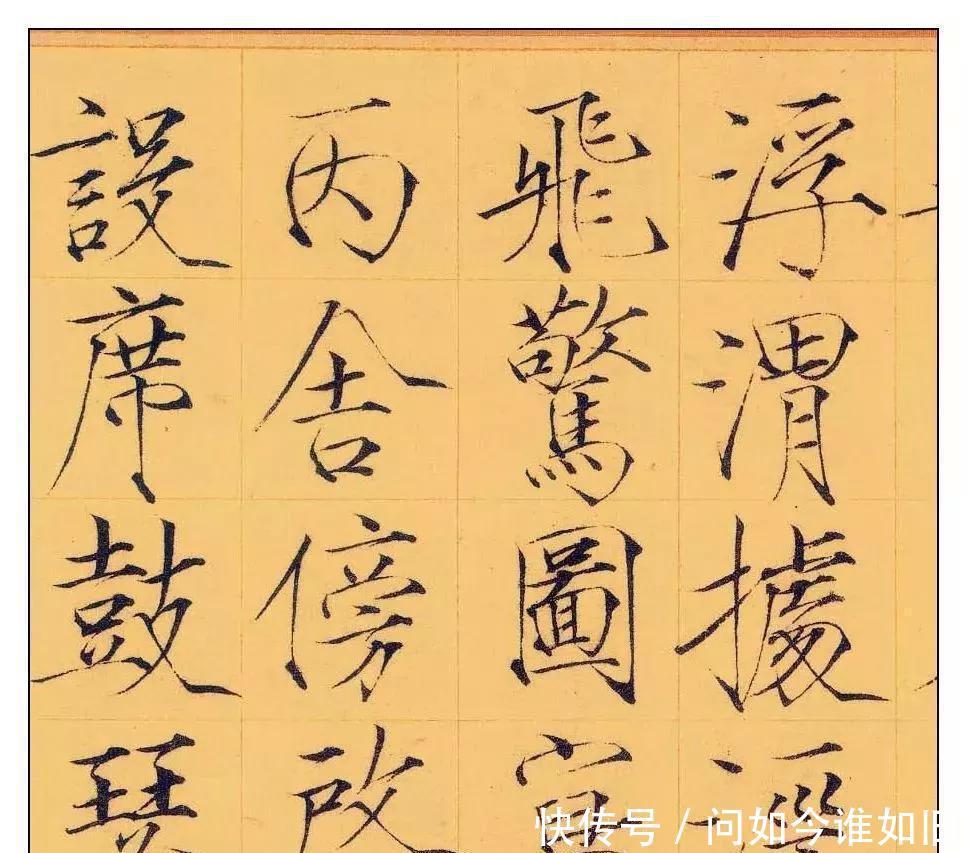 浮渭據涇
飛驚圖寫
丙舍傍啟
設席鼓瑟
快传号 / 问如今谁如旧